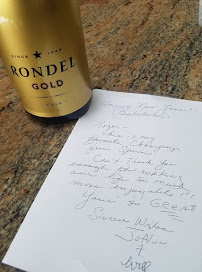 SINCE ★ 1949
RONDEL
GOLD
CAVA
Happy New Year!!
Roger -
This is my
favorite Champagne
from Spain.
Can't Thank You
enough for making
our life so much
more enjoyable.
You're So GREAT
Sincere Wishes
JoAnn
+
Will